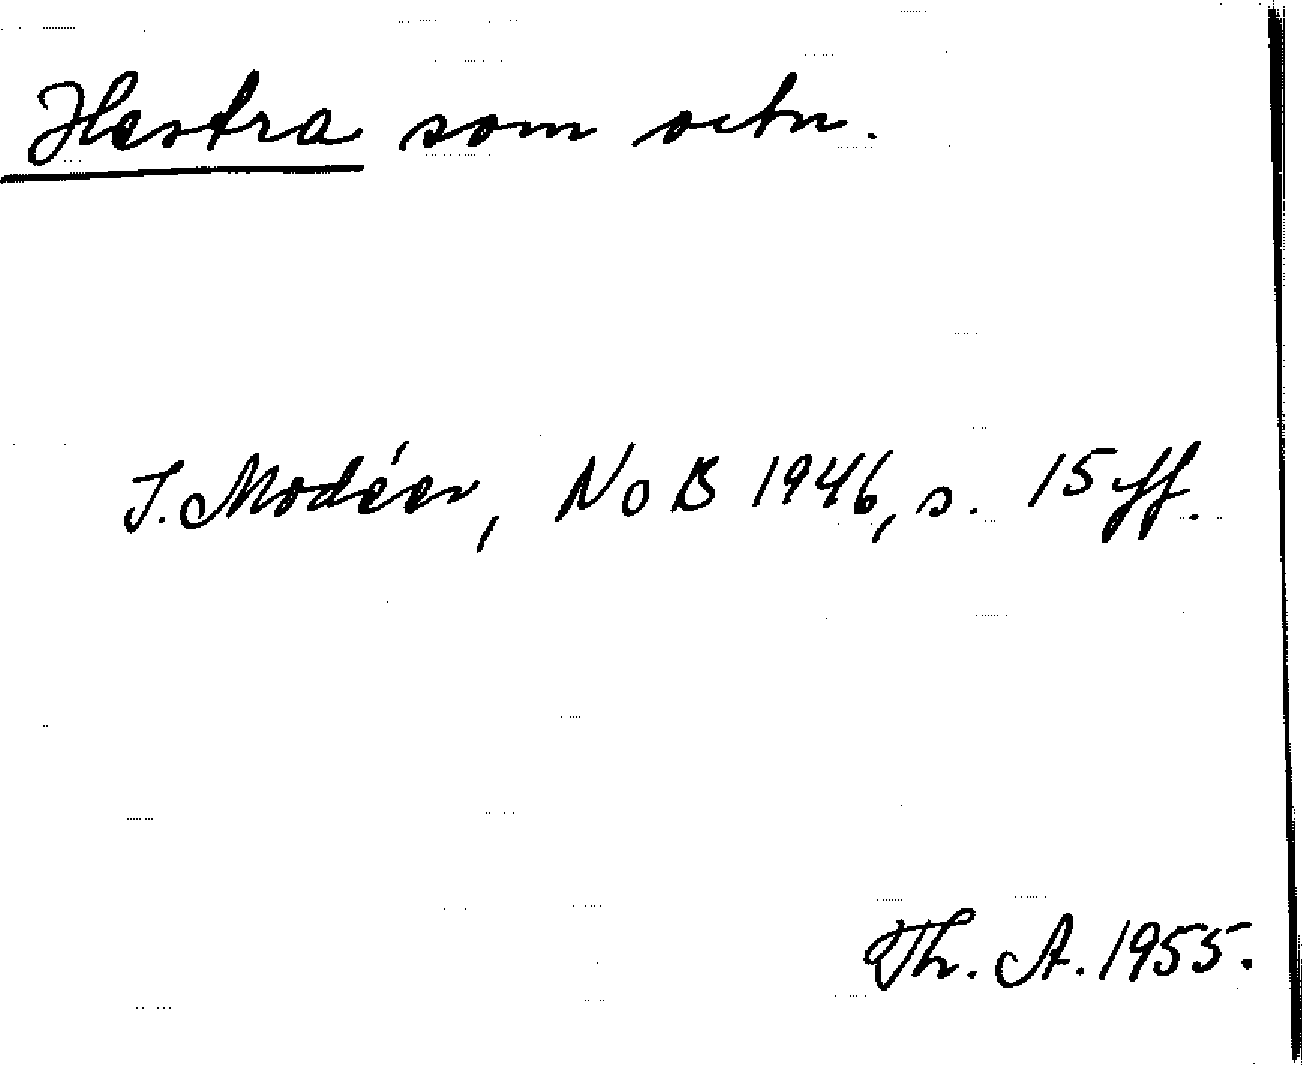 Hestra som ortn.
I. Modéer, NoB 1946, s. 15 ff.
Th. A. 1955.